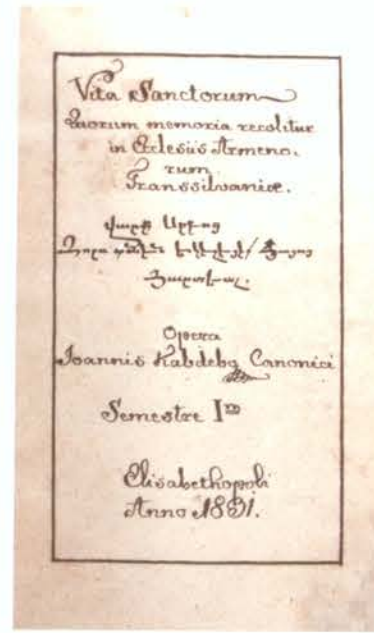 Vita Sanctorum
Quorum memoria recolitur
in Eclesiis Armeno.
rum
Transsilvaniæ.
վարք Սրբոց
Opera
Joannis Kabdebo Canonici
Semestre I
Elisabethopoli
Anno 1831.